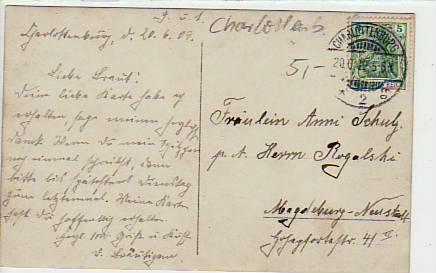 Charlottenburg, d. 20.6.09.
Charlottenb
Liebe Braut!
Deine liebe Karte habe ich
erhalten, sage meinen
Dank. Wenn du mein
noch einmal schreibst, dann
bitte bis spätestens Dienstag
zum letztenmal. Meine Karte
hast du hoffentlich erhalten.
Gruß u. Kuß
d. Bräutigam
5
CHARLOTTENBURG
20.6.
* 2
5 -
Fräulein Anni Schulz,
p. A. Herrn Rogalski
Magdeburg-Neustadt
Hohepfortestr. 41 II